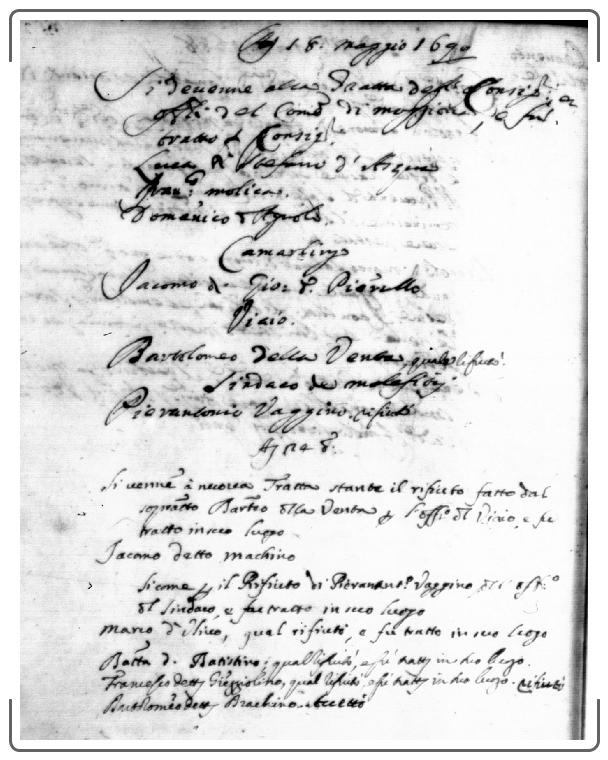 18. maggio 1690
Si devenne alla Tratta degl Consig.
del Com di e fu
tratto Consig.
Luca Stefano d'Aqua
Fran. molica.
Domenico d'
Camarling
Jacomo d. Gior. Piarello
Vicio.
Bartolomeo della Venta, quale rifiutò.
Sindaco de malefici
Pierantonio Vaggino, rifiutò
24
Si venne à nuova Tratta stante il rifiuto fatto dal
sopratto Barteo della Venta l'offo del Vicio, e fu
tratto in suo luogo
Jacomo detto machino
Sicome il Rifiuto di Pierant. Vaggino,
del Sindaco, e fu tratto in suo luogo
Marco d'Ulivo, qual rifiutò, e fu tratto in suo luogo
Batta d. Batistino; qual rifiutò, e fu tratto in suo luogo.
Francesco detto, qual rifiutò, e fu tratto in suo luogo. rifiutò
Bartolomeo detto Brachino. Accettò